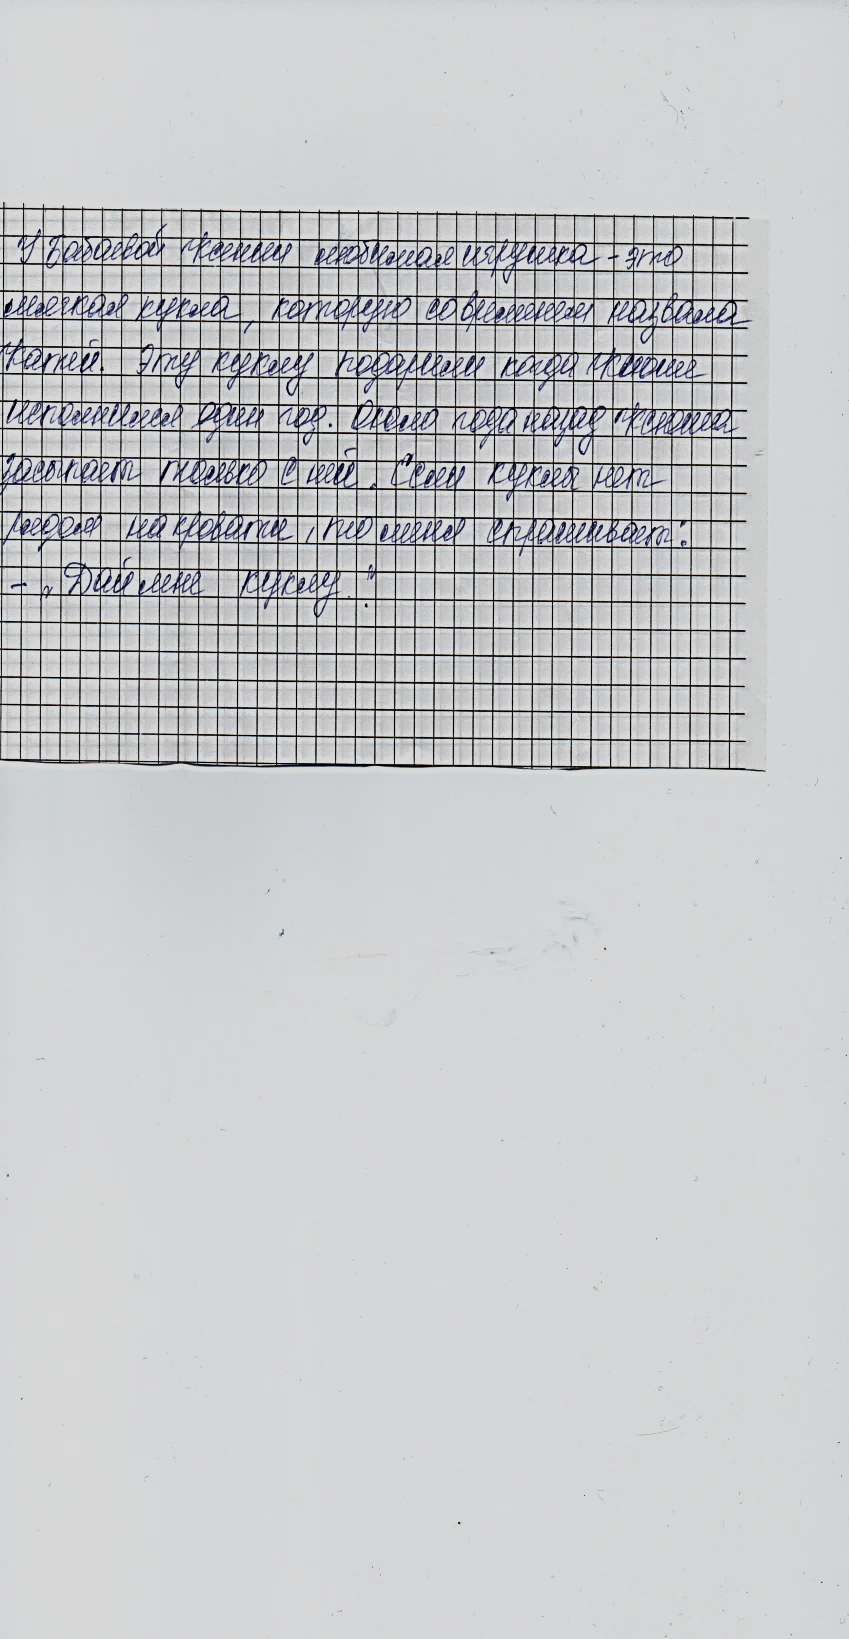 У Бабаевой Ксении любимая игрушка - это
мягкая кукла, которую со временем назвала
Катей. Эту куклу подарили когда Ксюше
исполнился один год. Около года назад Ксюша
засыпает только с ней. Если куклы нет
рядом на кровати, то меня спрашивает:
- „Дай мне куклу."